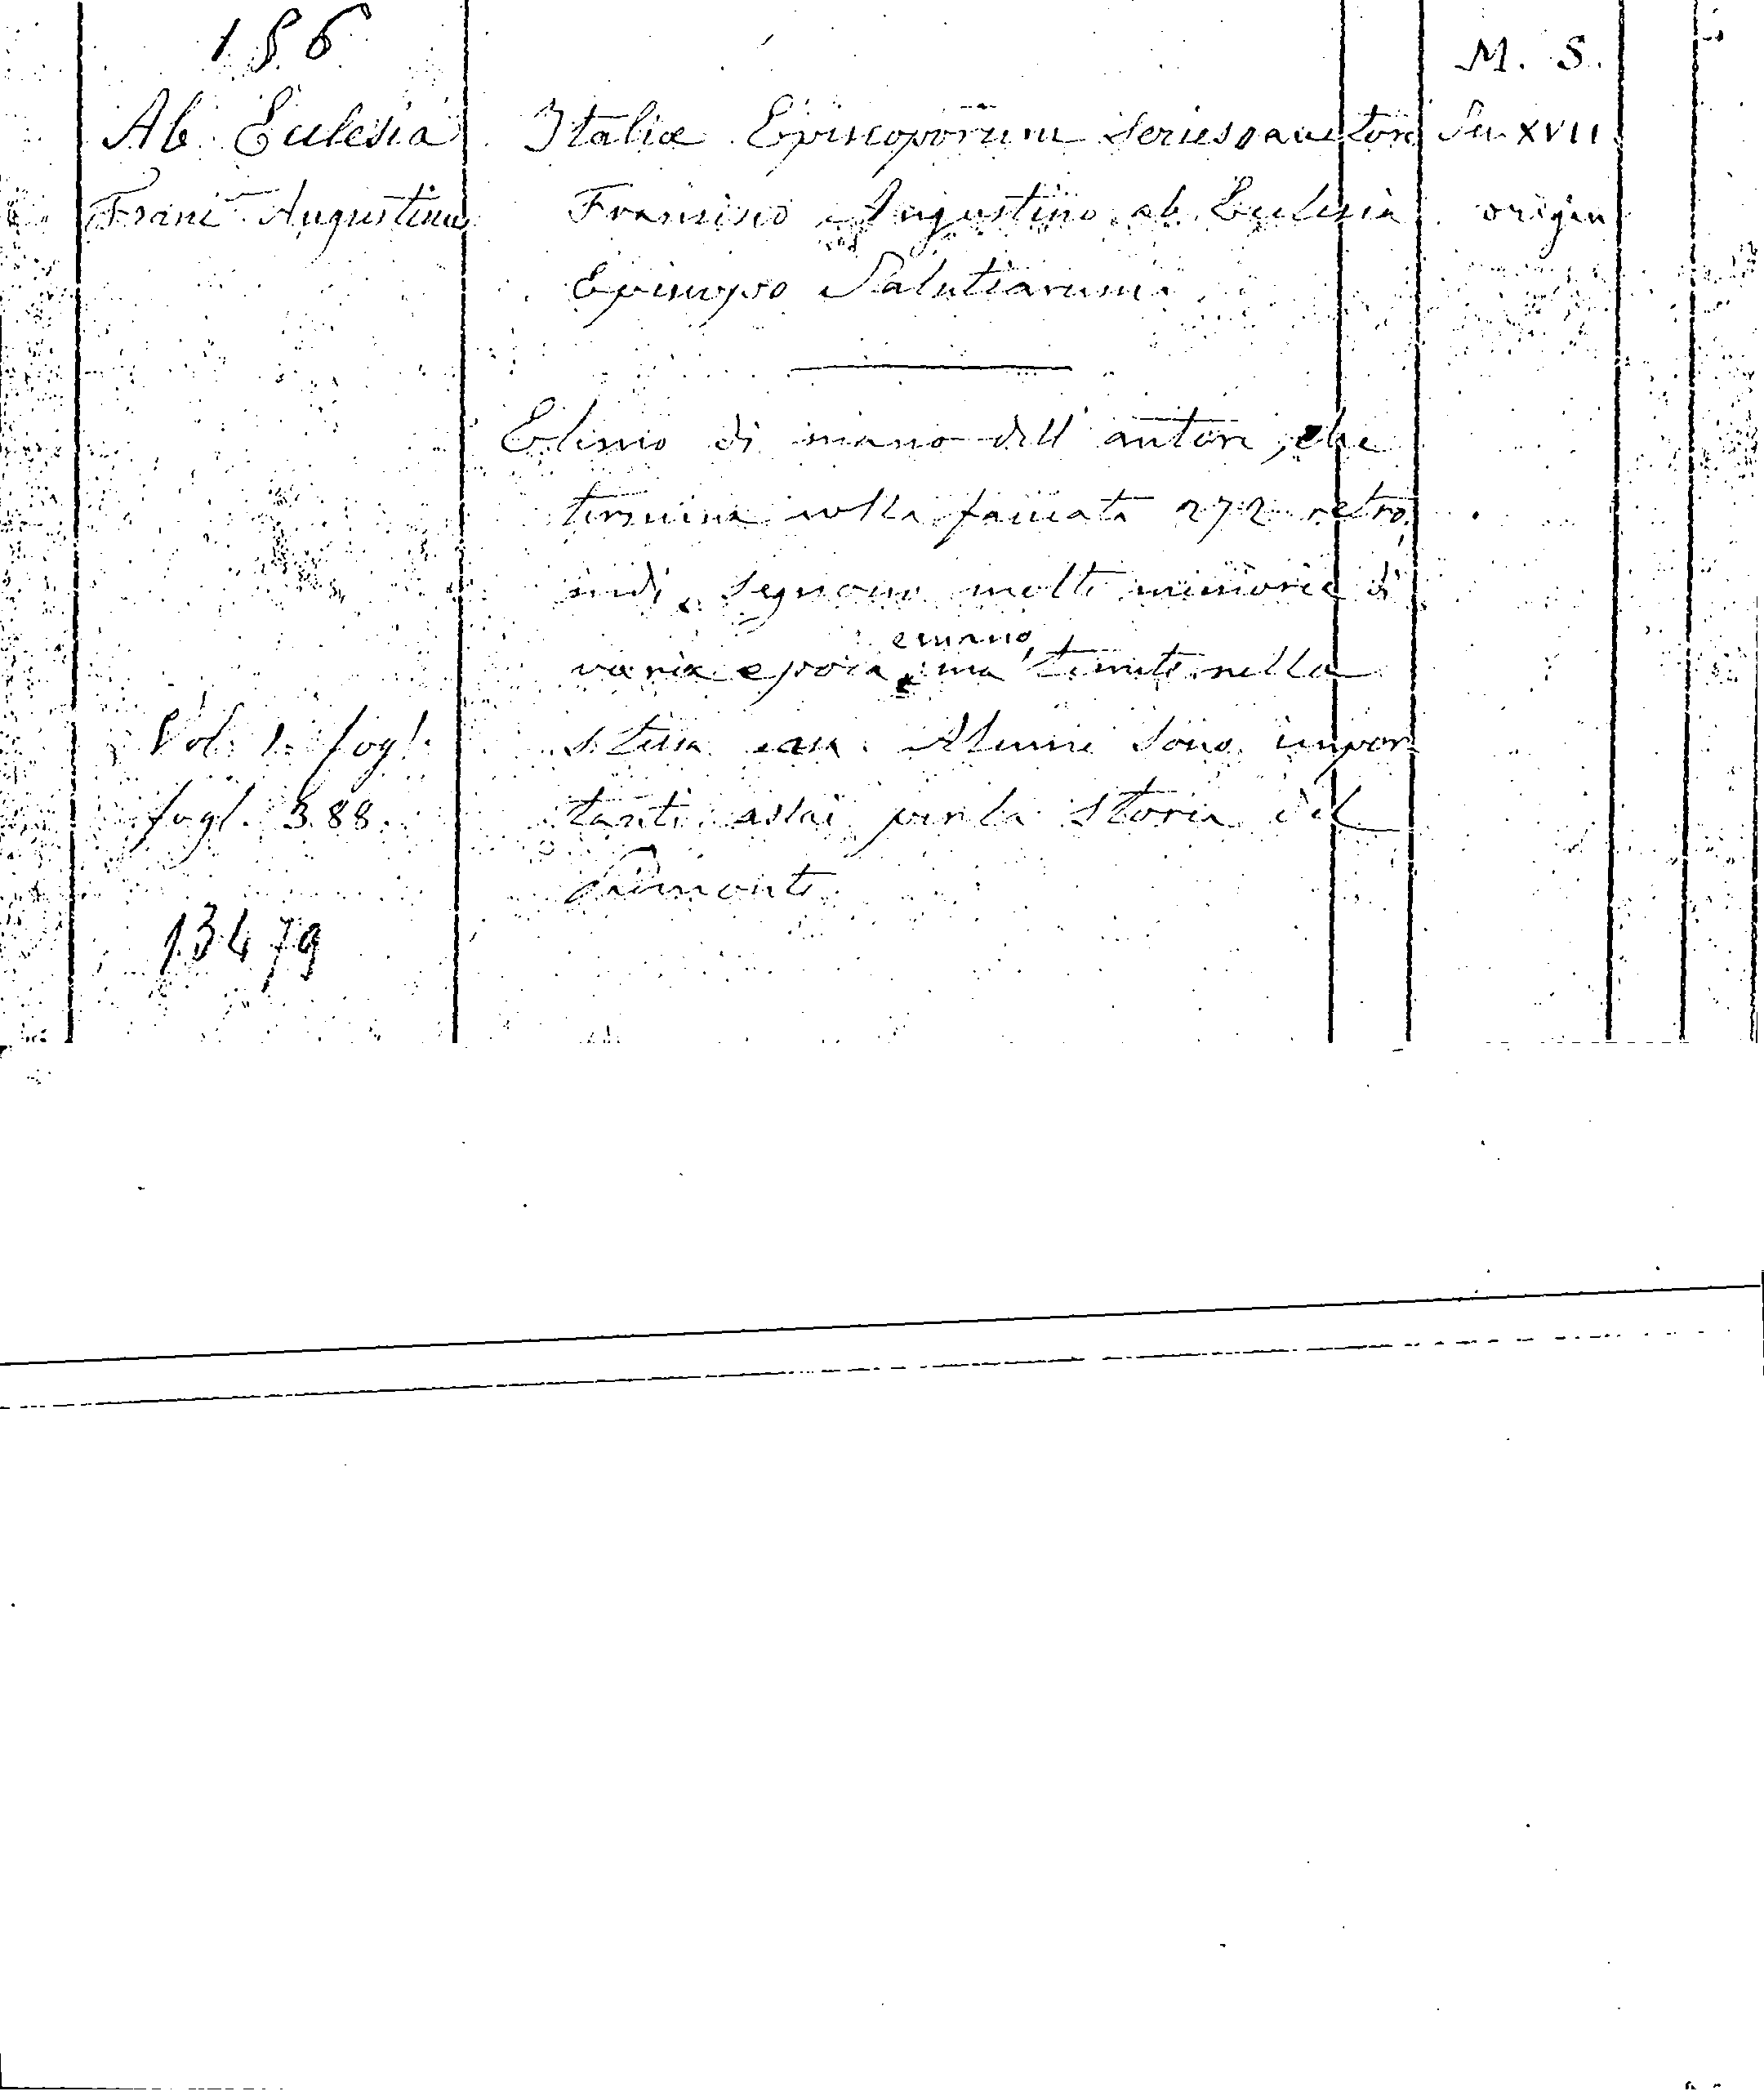 186
M. S.
Ab Eclesia
Italiæ Episcoporum Series auctore
Sec. XVII
Franc. Augustinus
Francisco Augustino ab Eclesia
origin
Episcopo Salutiarum.
È scritto di mano dell' autore, che
termina colla facciata 272 retro,
indi seguono molte memorie di
e mano,
varia epoca, ma tenute nella
Vol. 1. fogl.
stessa Alcune sono impor
fogl. 388.
tanti assai per la Storia del
Piemonte.
13479